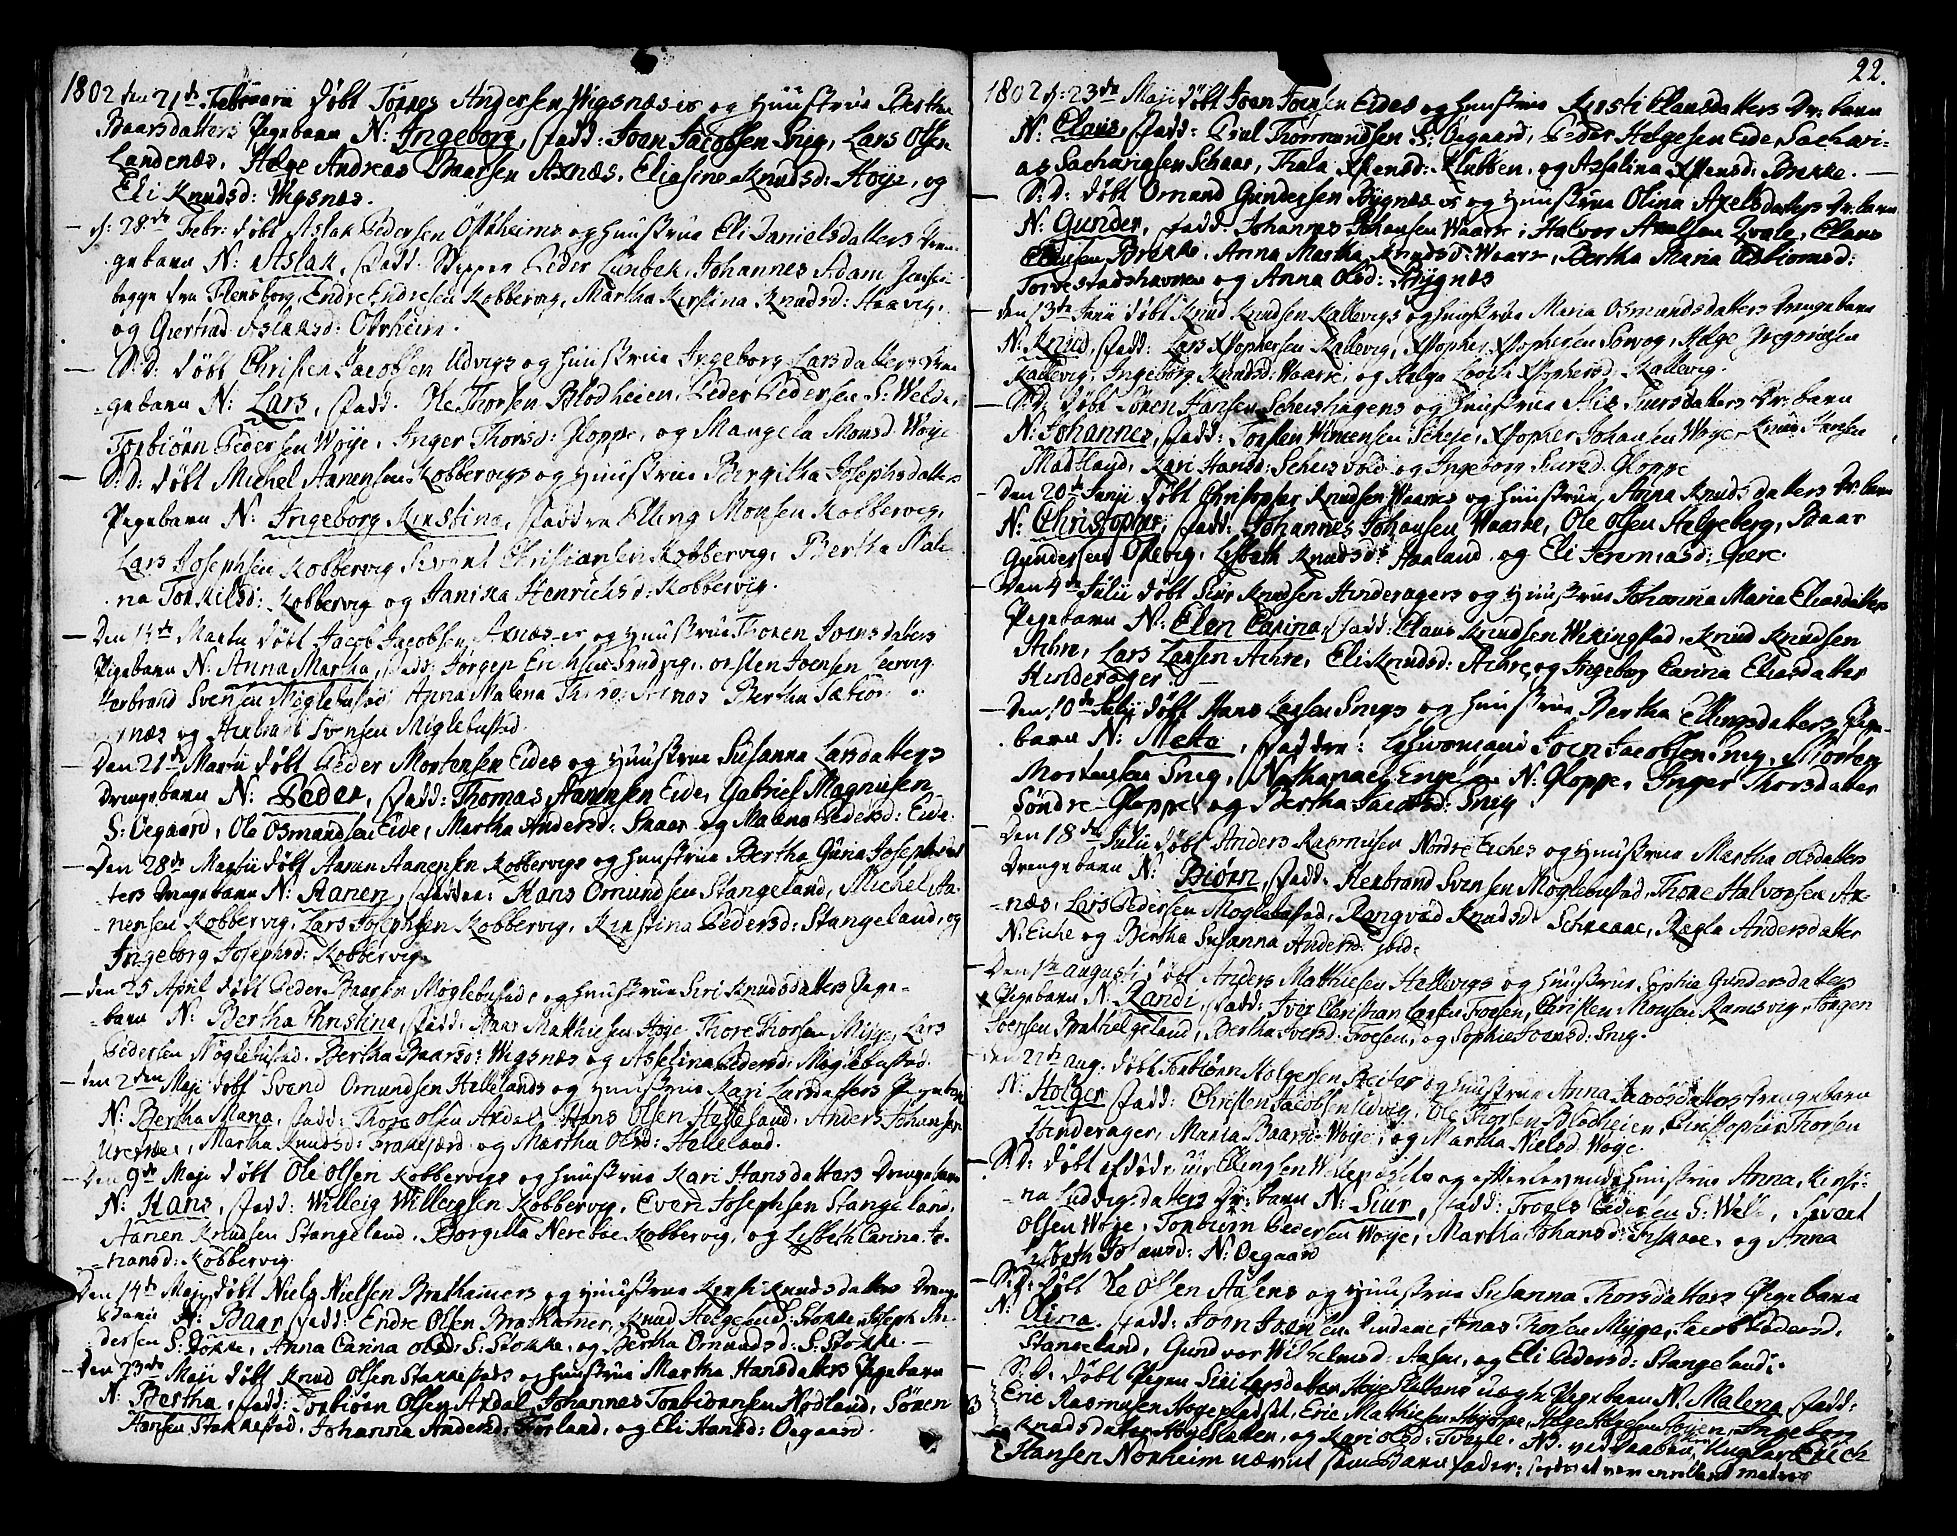 1802 den 21de Februarii døbt Tønnes Andersen Wigsnæs's og Huustrue Bertha
Baarsdatters Pigebarn N: Ingeborg, fadd: Joen Jacobsen Snig, Lars Olsen
Landenæs, Helge Andreas Baarsen Axnæs, Eliasine Knudsd: Høye, og
Eli Knudsd: Wigsnæs.
— d: 28de Febr: døbt Aslak Pedersen Ousheims og Huustrue Eli Danielsdatters Dren-
gebarn N: Aslak, fadd: Skipper Peder Lunbek, Johannes Adam Jensen
begge fra Flensborg, Endre Endresen Kobbervig, Martha Kirstina Knudsd: Haavig,
og Giertrud Aslaksd:
— S: D: døbt Christen Jacobsen Udvigs og Huustrue Ingeborg Larsdatters Dren-
gebarn N: Lars, fadd: Ole Thorsen Blodheien, Peder Pedersen S: Welde,
Torbiørn Pedersen Woye, Inger Thorsd: Gloppe, og Mangela Monsd: Woye
— S: D: døbt Michel Aanensen Kobbervigs og Huustrue Bergitha Josephsdatters
Pigebarn N: Ingeborg Kirstina, faddra Elling Monsen Kobbervig,
Lars Josephsen Kobbervig Sivert Christiansen Kobbervig, Bertha Male-
na Torkilsd: Kobbervig og Janika Henrichsd: Kobbervig.
— Den 14de Martii døbt Jacob Jacobsen Axnæs-er og Huustrue Thoren Joensdatters
Pigebarn N: Anna Martha, fadd: Jørgen Erichsen Sandvig,
Herbrand Svensen Moglebustad Anna Malena
og Herbrand Svensen Miglebustad.
— Den 21de Martii døbt Peder Mortensen Eides og Huustrue Susanna Larsdatters
Drengebarn N: Peder, fadd: Thomas Aanensen Eide, Gabriel Magnusen
S: Oegaard, Ole Osmundsen Eide, Martha Andersd: Skaar og Malena Pedersd: Eide.
— Den 28de Martii døbt Aanen Aanensen Kobbervigs og Huustrue Bertha Guria Josephsdat-
ters Drengebarn N: Aanen, faddra: Hans Omundsen Stangeland, Michel Aa-
nensen Kobbervig, Lars Josephsen Kobbervig, Kirstina Pedersd: Stangeland, og
Ingeborg Josephsd: Kobbervig.
— den 25 April døbt Peder Baarsen Moglebustads og Huustrue Siri Knudsdatters Pige-
barn N: Bertha Christina, fadd: Baar Mathiesen Høye, Thore Thorsen Miøye, Lars
Pedersen Moglebustad, Bertha Baarsd: Wigsnæs og Aselina Pedersd: Moglebustad.
— den 2den Maji døbt Svend Omundsen Hallelands og Huustrue Kari Larsdatters Pigebarn
N: Bertha Maria, fadd: Thore Olsen Axdal, Hans Olsen Halleland, Anders Johansen
Martha Knudsd: Frakefjærd og Martha Olsd: Halleland.
— Den 9de Maji døbt Ole Olsen Kobbervigs og Huustrue Kari Hansdatters Drengebarn
N: Hans, fadd: Willeig Willeigsen Kobbervig, Even Josephsen Stangeland,
Aanen Knudsen Stangeland, Borgilla Nereboe Kobbervig, og Lisbeth Carina Jo-
hansd: Kobbervig.
Den 14de Maji døbt Niels Nielsen Brathamers og Huustrue Kirsti Knudsdatters Drenge-
barn N: Baar fadd: Endre Olsen Brathamer, Knud Helgesen S: Stokke, Joseph An-
dersen S: Stokke, Anna Carina Olsd: S: Stokke, og Bertha Omundsd: S: Stokke. —
— den 23de Maji døbt Knud Olsen Stakkestads og Huustrue Martha Hansdatters Pigebarn
N: Bertha, fadd: Torbiørn Olsen Axdal, Johannes Torbiørnsen Nodland, Sønen
Hansen Stakkestad, Johanna Andersd: Norland, og Eli Hansd: Oegaard.
22.
1802 d: 23de Maji døbt Joen Joensen Eides og Huustrue Kirsti Clausdatters Dr: barn
N: Claus, fadd: Poul Thormundsen S: Oegaard, Peder Helgesen Eide, Sachari-
as Sachariasen Schaar, Thala Xstensd: Klubben, og Asselina Xstensd: Brekke. —
— S: D: døbt Omund Gundersen Bygnæs'es og Huustrue Olina Axelsdatters Dr: barn
N: Gunder, fadd: Johannes Johansen Waare, Halvor Axelsen Qvale, Claus
Clausen Brekke, Anna Martha Knudsd: Waare, Bertha Maria Asbiornsd:
Torvestadhavnen og Anna Olsd: Bygnæs
— den 13de Junii døbt Knud Knudsen Kallevigs og Huustrue Maria Osmundsdatters Drengebarn
N: Knud, fadd: Lars Xstophersen Kallevig, Xstopher Xstophersen Sorvog, Helge Gregoriusen
Kallevig, Ingeborg Knudsd: Waare, og Helga Xstophersd: Kallevig.
— S: D: døbt Sonen Hansen og Huustrue Siursdatters Dr: barn
N: Johannes, fadd: Torsten Scheie, Xstopher Johansen Woye, Knud Hansen
Madtland, Kari Hansd: og Ingeborg Siursd: Gloppe
— Den 20de Junii døbt Christopher Knudsen Waares og Huustrue Anna Knudsdatters Dr: barn
N: Christopher, fadd: Johannes Johansen Waare, Ole Olsen Helgeberg, Baar
Gundersen Okevig, Lisbeth Knudsd: Haaland og Eli Jeremiasd: Giere.
— Den 4de Julii døbt Siur Knudsen Hinderagers og Huustrue Johanna Maria Eliasdatters
Pigebarn N: Elen Carina, fadd: Claus Knudsen Wikingstad, Knud Knudsen
Achre, Lars Larsen Achre, Eli Knudsd: Achre og Ingeborg Carina Eliasdatter
Hinderager. —
— Den 10de Julij døbt Hans Larsen Snigs og Huustrue Bertha Ellingsdatters Pige-
barn N: Mette, faddre: Joen Jacobsen Snig, Morten
Mortensen Snig, Nathanael Engelsen N: Gloppe, Inger Thorsdatter
Søndre Gloppe, og Bertha Jacobsd: Snig.
— Den 18de Julii døbt Anders Rasmusen Nordre Eiches og Huustrue Martha Olsdatters
Drengebarn N: Biørn, fadd: Herbrand Svensen Moglebustad, Thore Halvorsen Ax-
næs, Lars Pedersen Moglebustad, Rangvad Knudsd: Schreaae, Ragla Andersdatter
N: Eiche og Bertha Susanna Andersd: ibid:
— Den 1ste Augusti døbt Anders Matthiesen Hellevigs og Huustrue Sophia Gundersdatters
Pigebarn N: Randi, fadd: Iver Christian Larsen Foesen, Christen Monsen Ramsvig, Jørgen
Joensen Brathelgeland, Bertha Iversd: Foesen, og Sophie Joensd: Snig.
den 22de Aug: døbt Torbiørn Holgersen Breitas og Huustrue Anna Jacobsdatters Drengebarn
N: Holger, fadd: Christen Jacobsen Udvig, Ole Thorsen Blodheien, Christopher Thorsen
Hinderager, Maria Baarsd: Woye, og Martha Nielsd: Woye.
— S: D: døbt afdøde Siur Ellingsen og efterlevende Huustrue Anna Kirsti-
na Ludvigsdatters Dr: barn N: Siur, fadd: Troels Pedersen S: Welde, Sivert
Olsen Woye, Torbiørn Pedersen Woye, Martha Johansd: Fiskaae, og Anna
Lisbeth Johansd: N: Oegaard
— S: D: døbt Ole Olsen Aasens og Huustrue Susanna Thorsdatters Pigebarn
N: Olina. fadd: Joen Joensen Lindanæ, Jonas Thorsen Meyge, Jacob Pedersd.
Stangeland, Gundvor Wilhelmsd: Aasen, og Eli Pedersd: Stangeland.
— S: D: døbt Pigen Siri Larsdatter Høye Slettens uægte Pigebarn N: Malena, fadd:
Eric Rasmusen Høyeplads, Eric Mathiesen Høye, Helge Helgesen Høyen, Ingeborg
Knudsdatter Høyesletten, og Kari Olsd: Tveite. NB. ved Daaben blev Ungkarl Erich
Hansen Norheim nævnt som Barnefader;